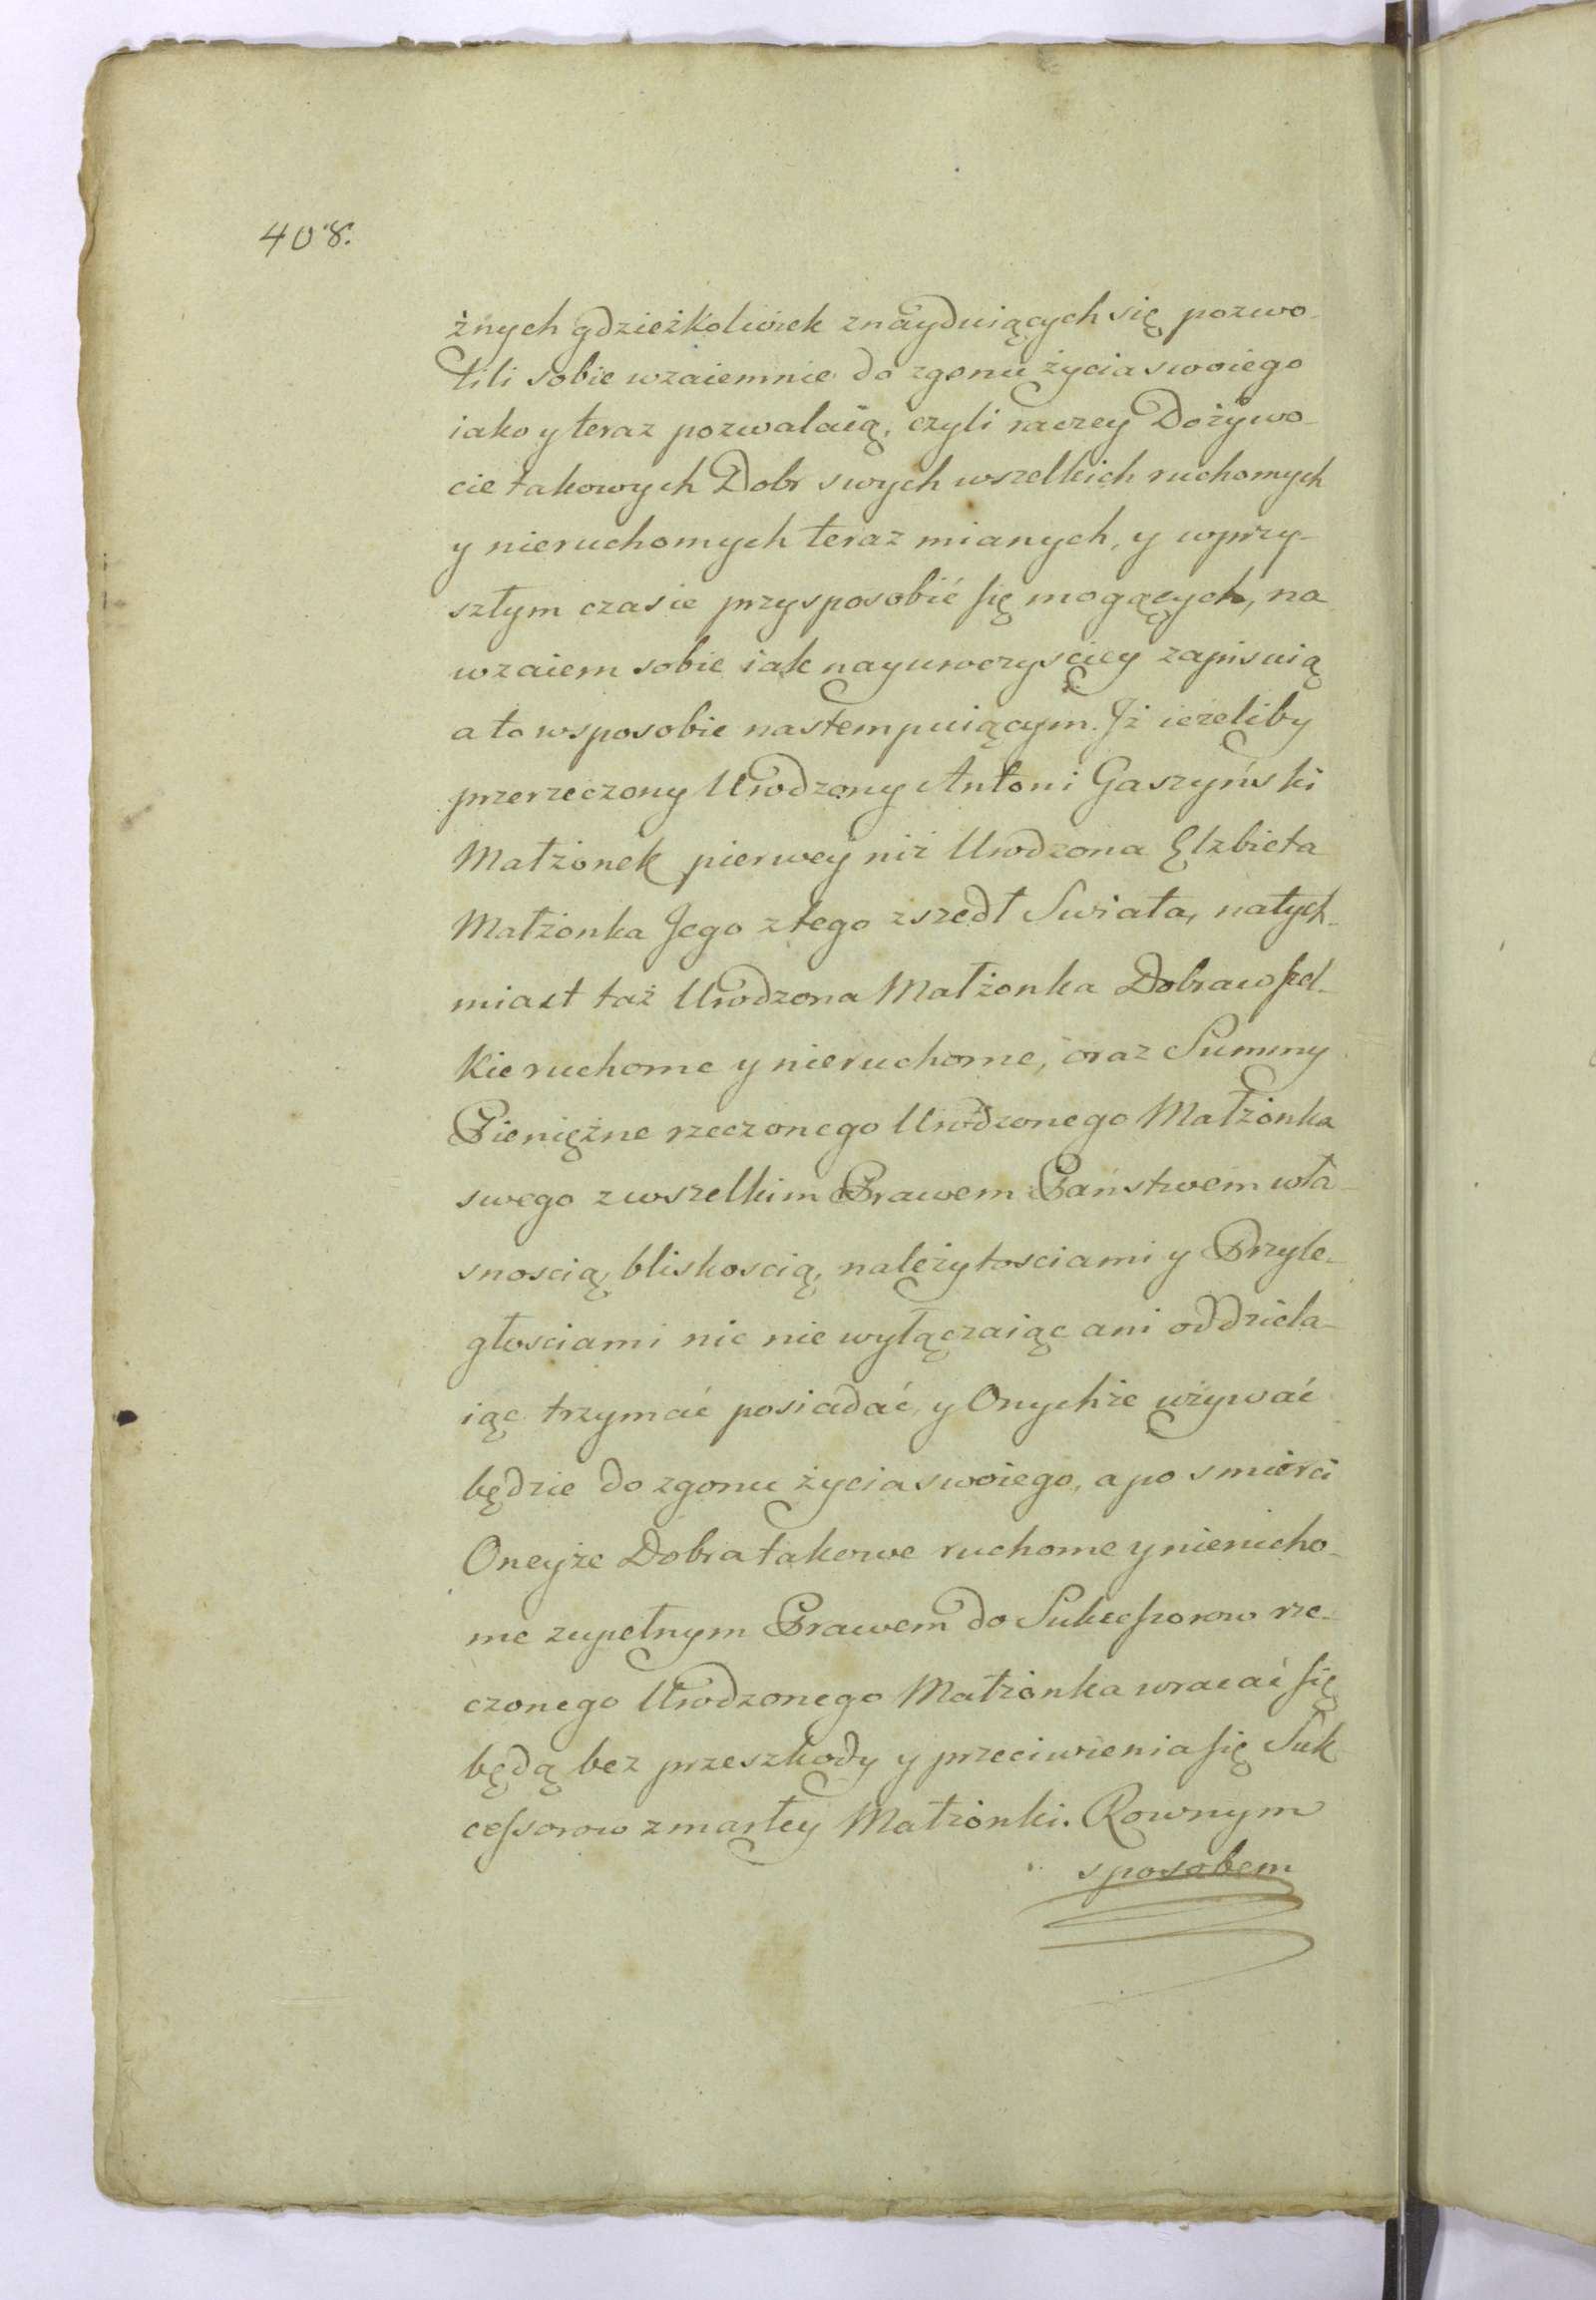 408.
żnych gdzieżkolwiek znayduiących się pozwo-
lili sobie wzaiemnie do zgonu życia swoiego
iako y teraz pozwalaią, czyli raczey Dożywo-
cie takowych Dobr swych wszelkich ruchomych
y nieruchomych teraz mianych, y wprzy-
szłym czasie przysposobić się mogących, na
wzaiem sobie iak nayuroczyściey zapisuią
a to wsposobie nastempuiącym. Jż ieżeliby
przerzeczony Urodzony Antoni Gaszyński
Małżonek pierwey niż Urodzona Elzbieta
Małżonka Jego z tego zszedł Swiata, natych-
miast taż Urodzona Małżonka Dobra wszel-
kie ruchome y nieruchome, oraz Summy
Pieniężne rzeczonego Urodzonego Małżonka
swego z wszelkim Prawem Państwem wła-
snoscią, bliskoscią, należytosciami y Przyle-
głosciami nic nie wyłączaiąc ani oddziela-
iąc trzymać posiadać, y Onychże używać
będzie do zgonu życia swoiego, a po smierci
Oneyże Dobra takowe ruchome y nierucho-
me zupełnym Prawem do Sukcessorow rze-
czonego Urodzonego Małżonka wracać się
będą bez przeszkody y przeciwienia się Suk
cessorow zmarłey Małżonki. Rownym
sposobem